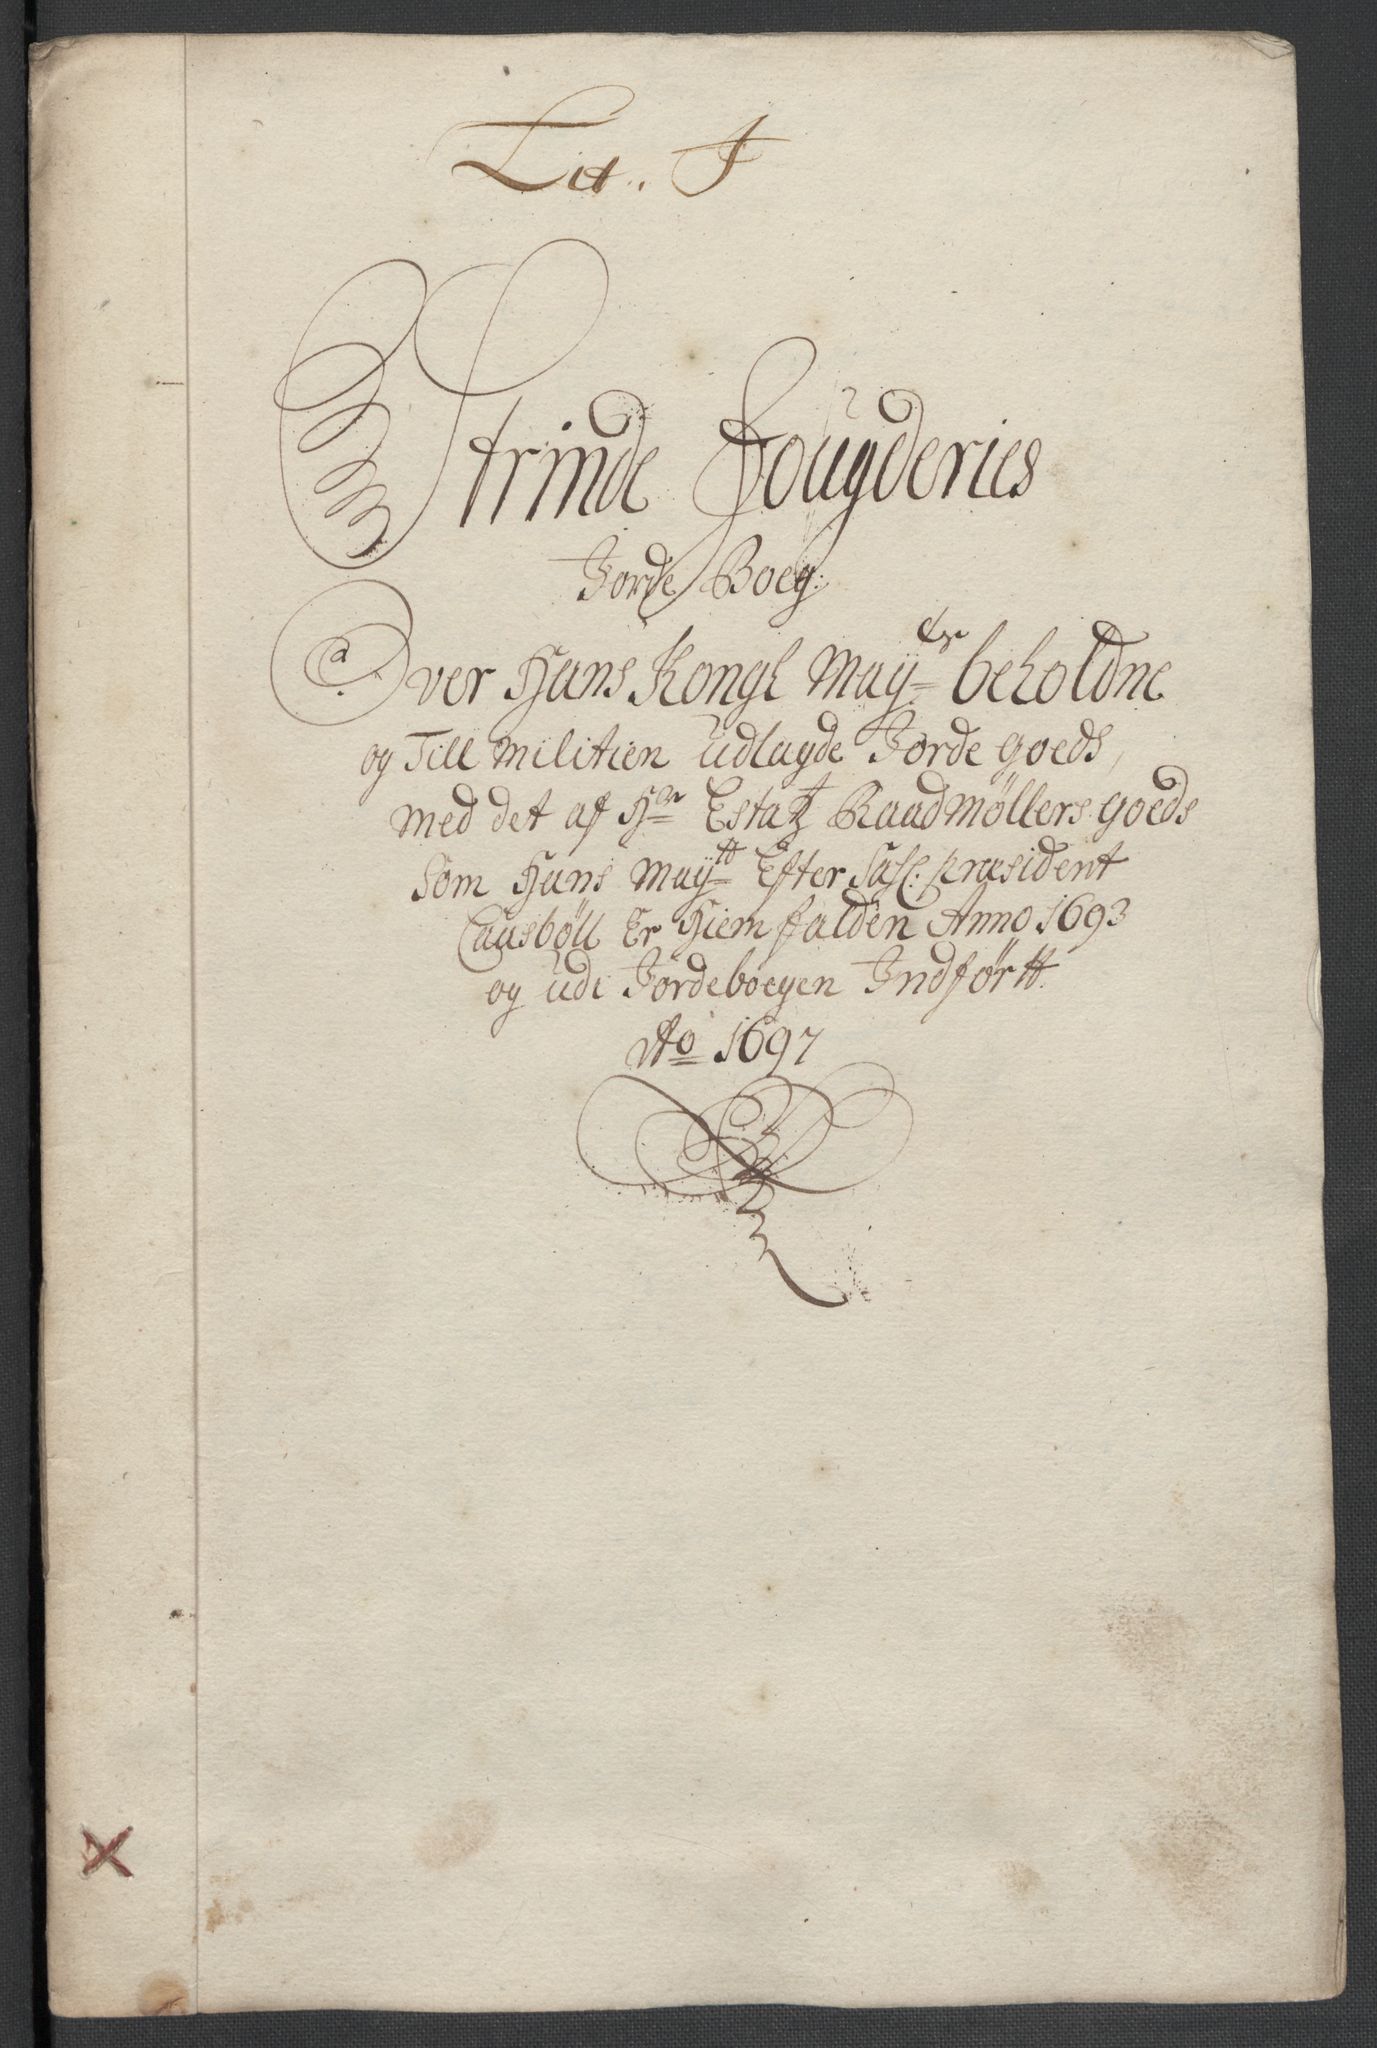 Lit. F
Strinde Fougderies
Jorde Boeg:
Over Hans Kongl May:tz beholdne
og Till Militien Udlagde Jorde goeds,
med det af Hr: Estatz Raad Møllers goeds
Som Hans May:tt Efter Sal: præsident
Causböll Er Hiemfalden Anno 1693
og udi Jordebogen Indførtt.
Ao 1697